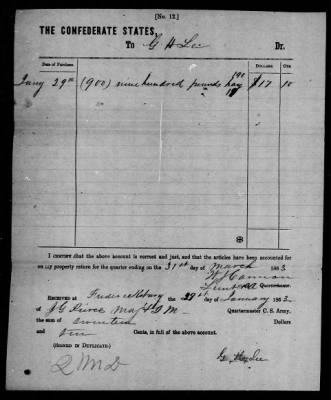 [No. 12.]
THE CONFEDERATE STATES,
To G H Lee Dr.
Date of Purchase. DOLLARS. CTS
Jany 29th (900) nine hundred pounds hay 190 $17 10
I CERTIFY that the above account is correct and just, and that the articles have been accounted for
on my property return for the quarter ending on the 31st day of March 1863
Quartermaster.
RECEIVED AT Fredericksburg the 29th day of January 1863,
of J G Pierce Maj & Q M Quartermaster C. S. Army,
the sum of seventeen Dollars
and ten Cents, in full of the above account.
(SIGNED IN DUPLICATE.)
G. H. Lee